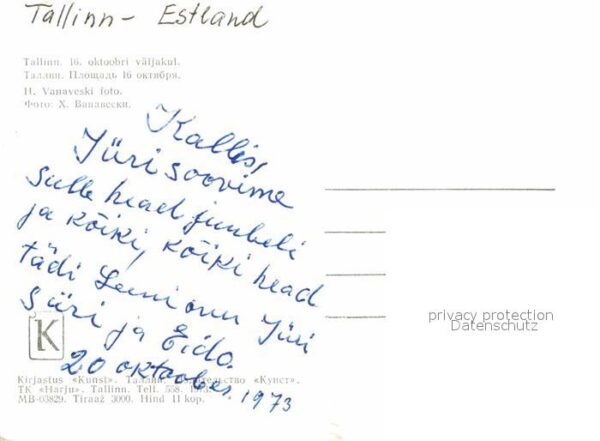 Tallinn - Estland
Tallinn. 16. oktoobri väljakul.
Таллин. Площадь 16 октября.
H. Vanaveski foto.
Фото: Х. Ванавески.
Kallis!
Jüri soovime
Sulle head juubeli
ja kõiki, kõiki head
tädi Leeni onu Jüri
Siiri ja Eido.
20 oktoober. 1973
K
privacy protection
Datenschutz
Kirjastus «Kunst». Таллин. Издательство «Кунст».
TK «Harju». Tallinn. Tell. 558.
MB-03829. Tiraaž 3000. Hind 11 kop.